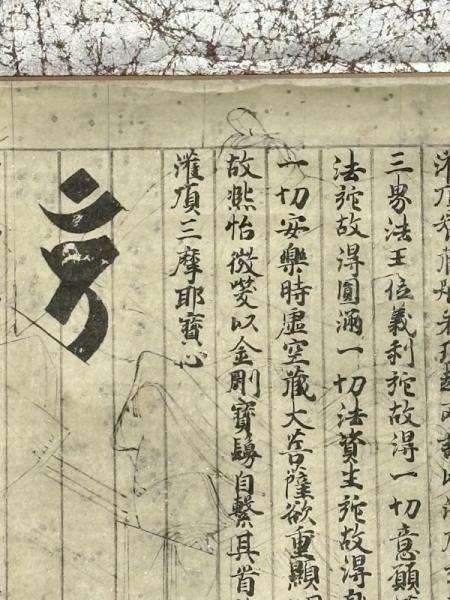 三界法王位義利施故得一切意願
法施故得圓滿一切法資生施故得
一切安樂時虛空藏大菩薩欲重顯
故熙怡微笑以金剛寶鬘自繫其首
灌頂三摩耶寶心